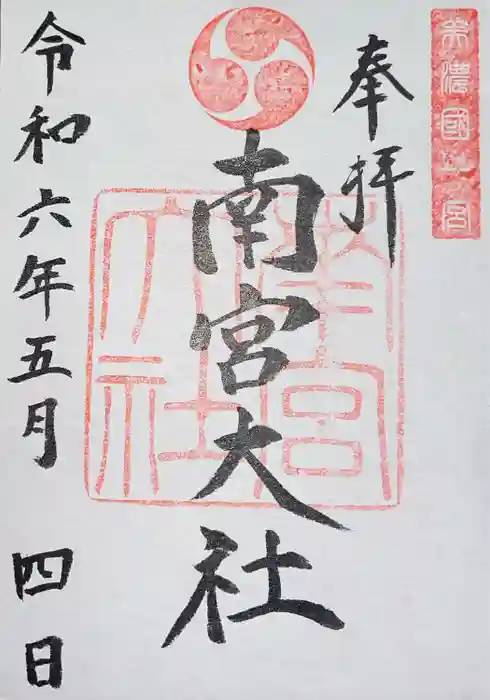 美濃國一の宮
奉拝
南宮大社
南宮大社
令和六年五月四日